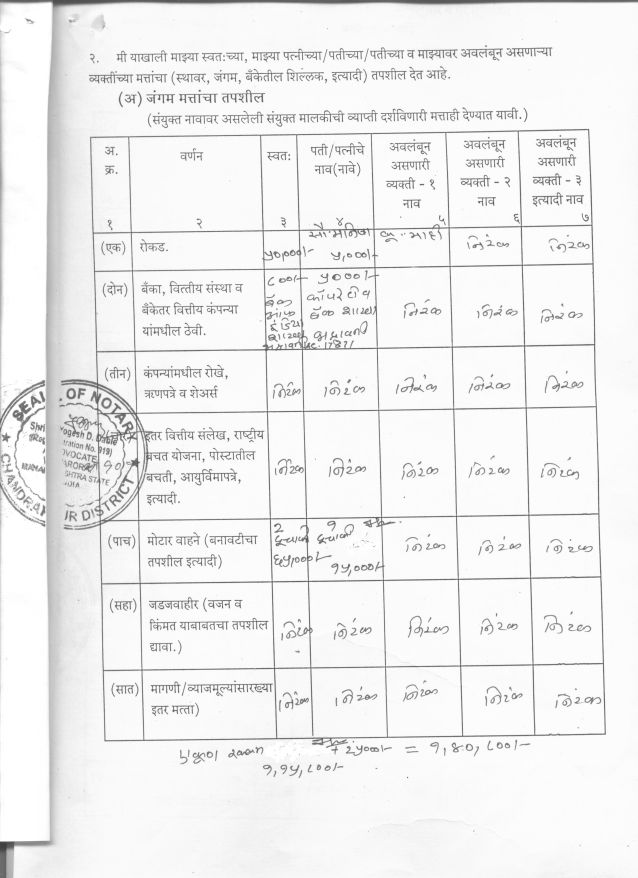 २. मी याखाली माझ्या स्वत:च्या, माझ्या पत्नीच्या/पतीच्या/पतीच्या व माझ्यावर अवलंबून असणाऱ्या
व्यक्तींच्या मत्तांचा (स्थावर, जंगम, बँकेतील शिल्लक, इत्यादी) तपशील देत आहे.
(अ) जंगम मत्तांचा तपशील
(संयुक्त नावावर असलेली संयुक्त मालकीची व्याप्ती दर्शविणारी मत्ताही देण्यात यावी.)
अ. क्र. वर्णन स्वत: पती/पत्नीचे नाव(नावे) अवलंबून असणारी व्यक्ती - १ नाव अवलंबून असणारी व्यक्ती - २ नाव अवलंबून असणारी व्यक्ती - ३ इत्यादी नाव
१ २ ३ ४ ५ ६ ७
(एक) रोकड. ५०,०००/- ५,०००/- निरंक निरंक
(दोन) बँका, वित्तीय संस्था व
बँकेतर वित्तीय कंपन्या
यांमधील ठेवी.
८००/- ५०००/-
बँक ऑफ इंडिया शाखा
बँक शाखा
निरंक निरंक निरंक
(तीन) कंपन्यांमधील रोखे,
ऋणपत्रे व शेअर्स
निरंक निरंक निरंक निरंक निरंक
इतर वित्तीय संलेख, राष्ट्रीय
बचत योजना, पोस्टातील
बचती, आयुर्विमापत्रे,
इत्यादी.
निरंक निरंक निरंक निरंक निरंक
(पाच) मोटार वाहने (बनावटीचा
तपशील इत्यादी)
२ दुचाकी १ दुचाकी
६५०००/- १५,०००/-
निरंक निरंक निरंक
(सहा) जडजवाहीर (वजन व
किंमत याबाबतचा तपशील
द्यावा.)
निरंक निरंक निरंक निरंक निरंक
(सात) मागणी/व्याजमूल्यांसारख्या
इतर मत्ता)
निरंक निरंक निरंक निरंक निरंक
एकूण रक्कम + २५०००/- = १,४०,८००/-
१,१५,८००/-
SEAL OF NOTARY
Shri
Yogesh D.
No. 919)
ADVOCATE
STATE
CHANDRAPUR DISTRICT